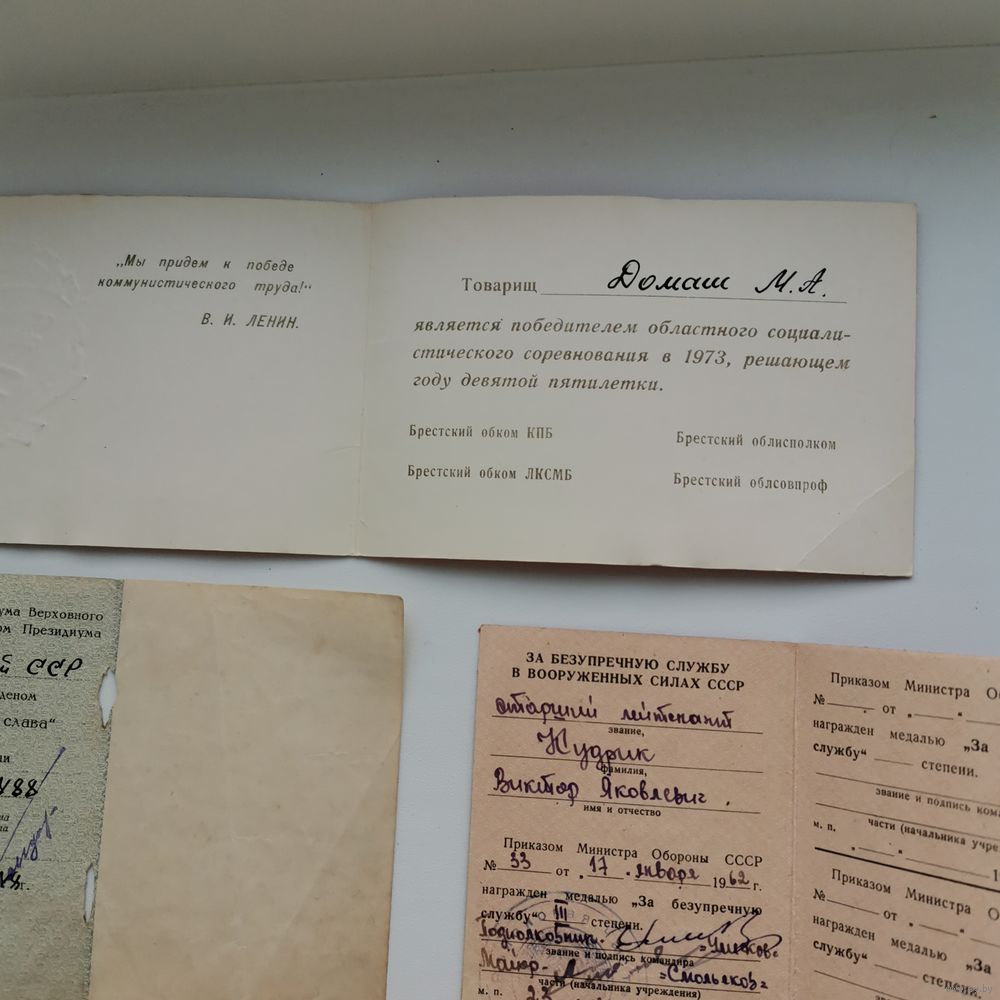 „Мы придем к победе
коммунистического труда!“
В. И. ЛЕНИН.
Товарищ Домаш М.А.
является победителем областного социали-
стического соревнования в 1973, решающем
году девятой пятилетки.
Брестский обком КПБ
Брестский облисполком
Брестский обком ЛКСМБ
Брестский облсовпроф
ума Верховного
ом Президиума
й ССР
деном
слава“
ЗА БЕЗУПРЕЧНУЮ СЛУЖБУ
В ВООРУЖЕННЫХ СИЛАХ СССР
старший лейтенант
звание,
Кудрик
фамилия,
Виктор Яковлевич.
имя и отчество
Приказом Министра Обороны СССР
№ 33 от „17“ января 1962 г.
награжден медалью „За безупречную
службу“ III степени.
Подполковник
звание и подпись командира
Майор- =Смольяков=
часть (начальника учреждения)
м. п.
Приказом Министра Об
№ от „ “
награжден медалью „За
службу“ степени.
звание и подпись кома
части (начальника учре
м. п.
Приказом Министра О
№ от „ “
награжден медалью „За
службу“ степени.